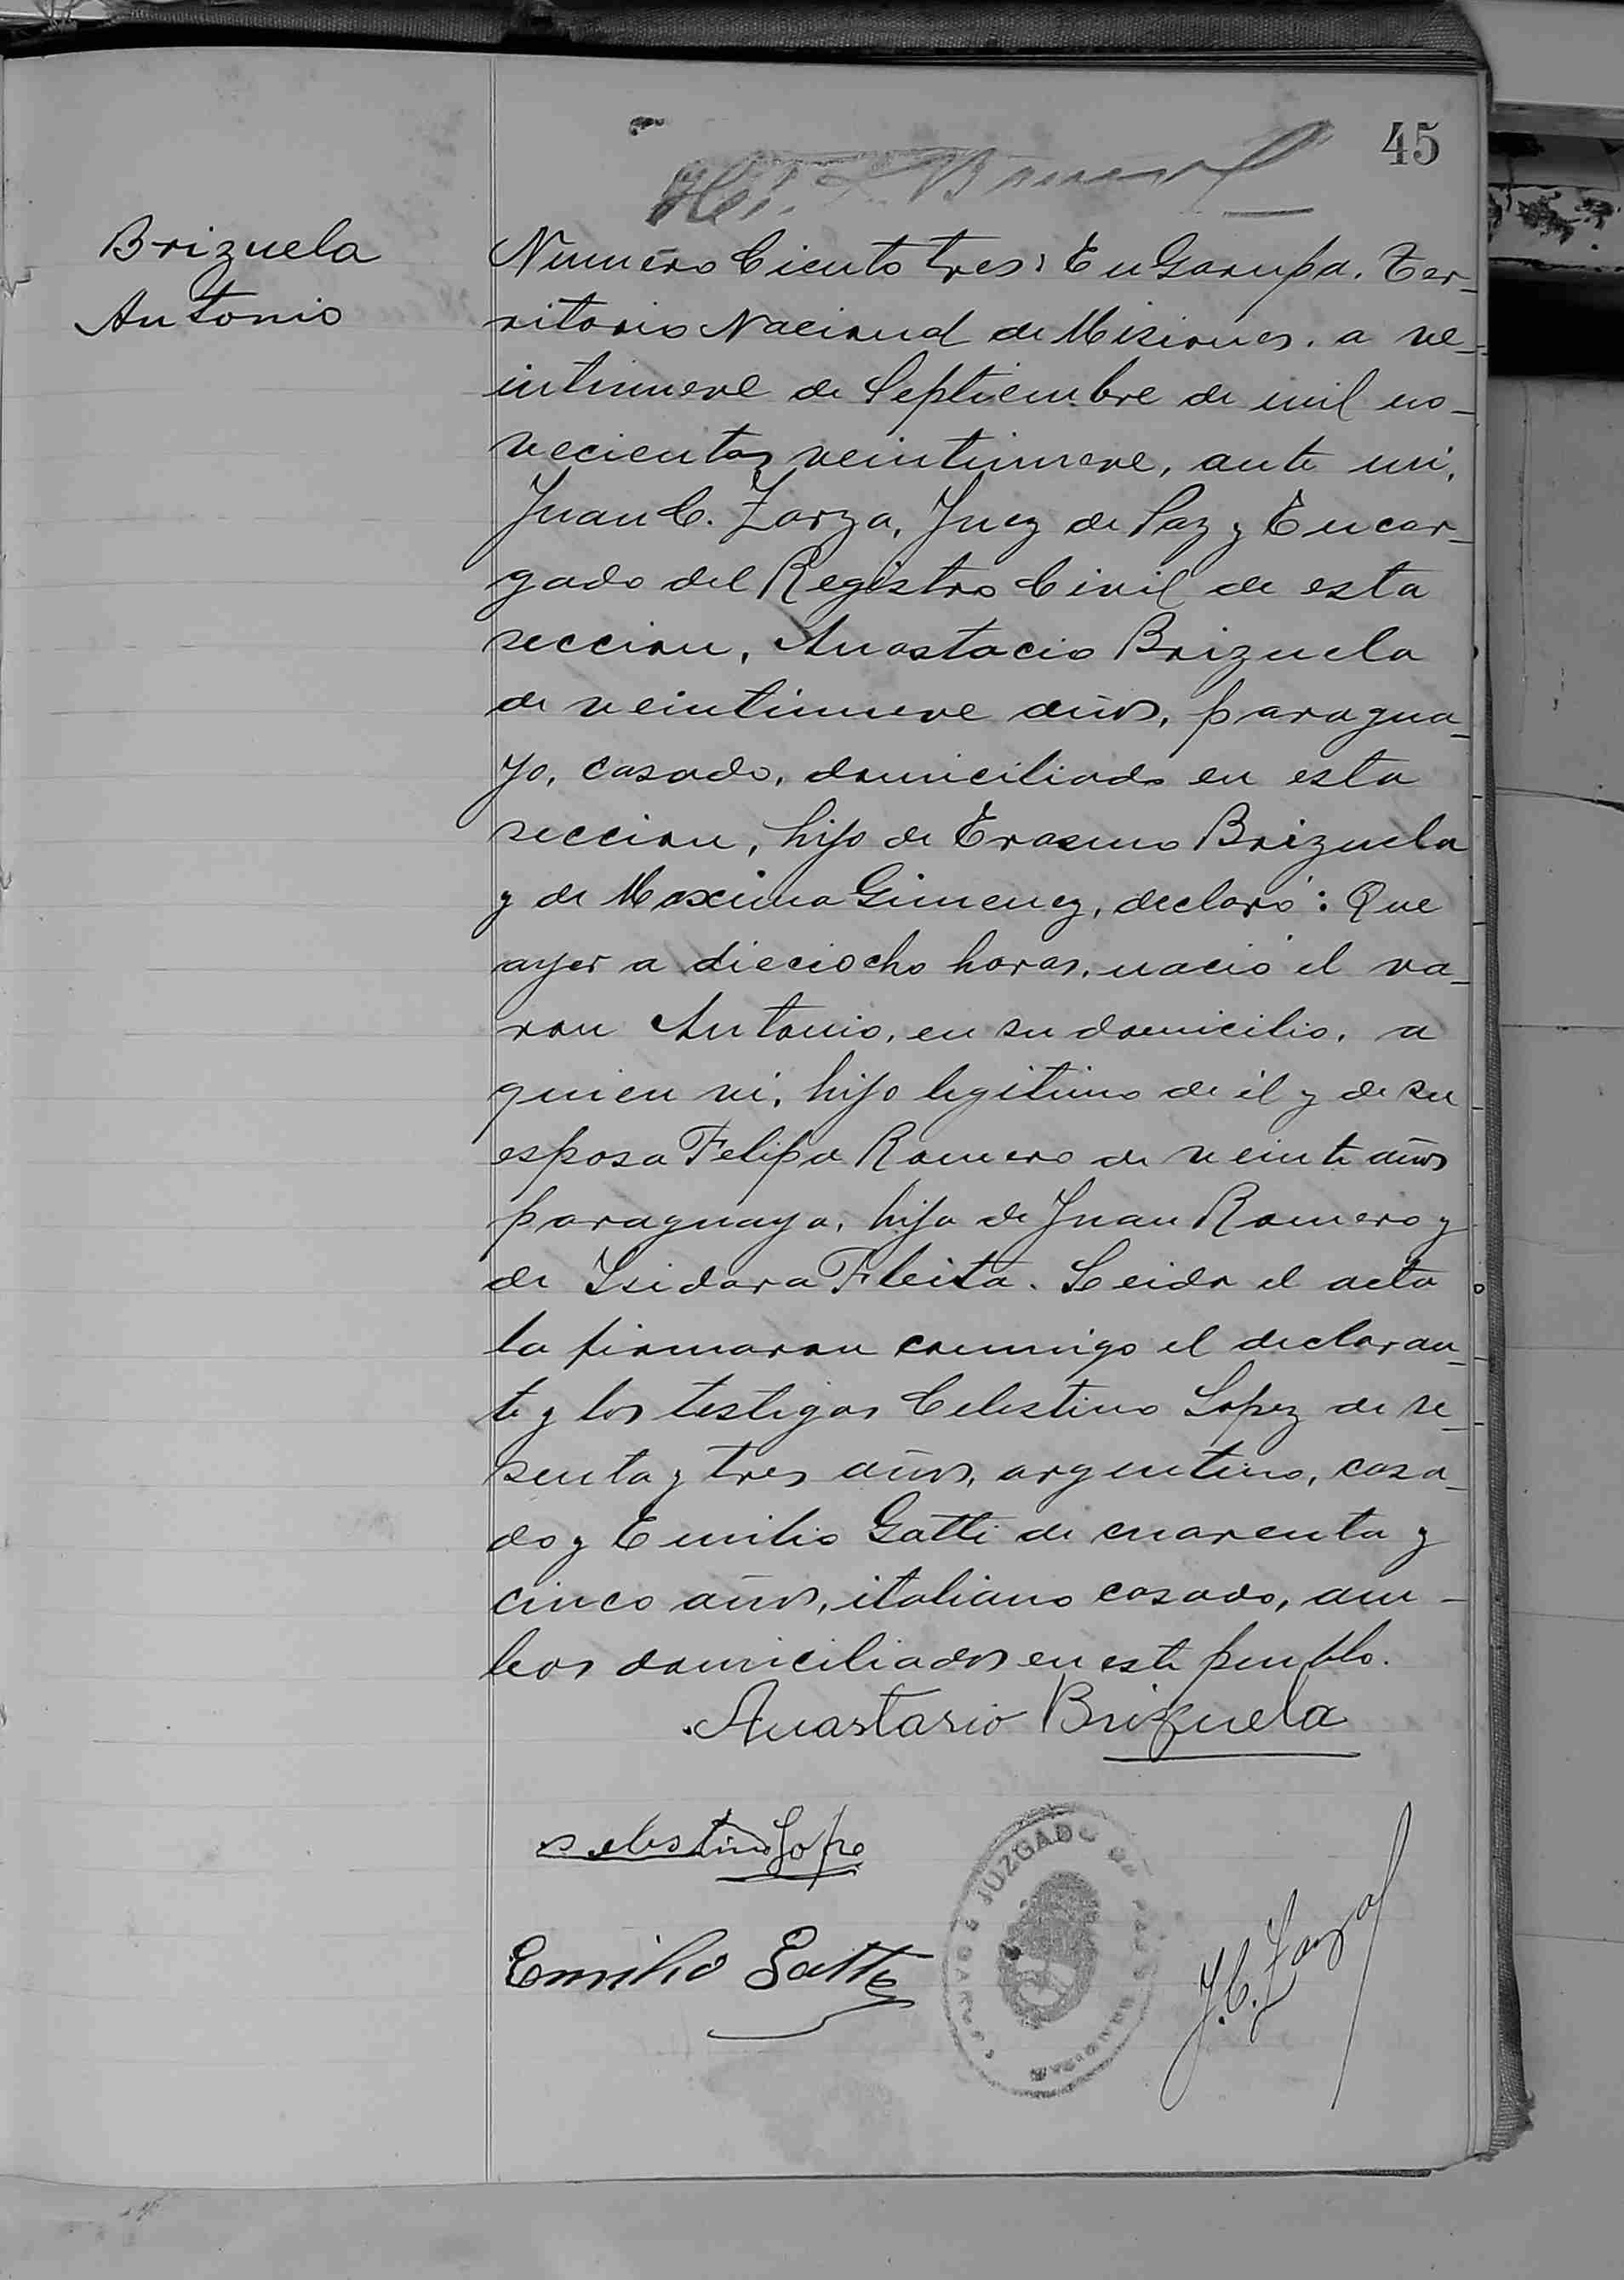 45
Brizuela
Antonio
Numero Ciento tres: En Garupa. Ter-
ritorio Nacional de Misiones. a ve-
intinueve de Septiembre de mil no-
vecientos veintinueve, ante mi,
Juan C. Zarza, Juez de Paz y Encar-
gado del Registro Civil de esta
seccion, Anastacio Brizuela
de veintinueve años, paragua-
yo, casado, domiciliado en esta
seccion, hijo de Erasmo Brizuela
y de Maxima Gimenez, declaró: Que
ayer a dieciocho horas, nació el va-
ron Antonio, en su domicilio, a
quien vi, hijo legitimo de él y de su
esposa Felipa Romero de veinte años
paraguaya, hija de Juan Romero y
de Isidora Fleita. Leida el acta
la firmaron conmigo el declaran-
te y los testigos Celestino Lopez de se-
senta y tres años, argentino, casa-
do y Emilio Gatti de cuarenta y
cinco años, italiano casado, am-
bos domiciliados en este pueblo.
Anastasio Brizuela
selestino Lope
JUZGADO DE PAZ
GARUPA
Emilio Gatti
J. C. Zarza